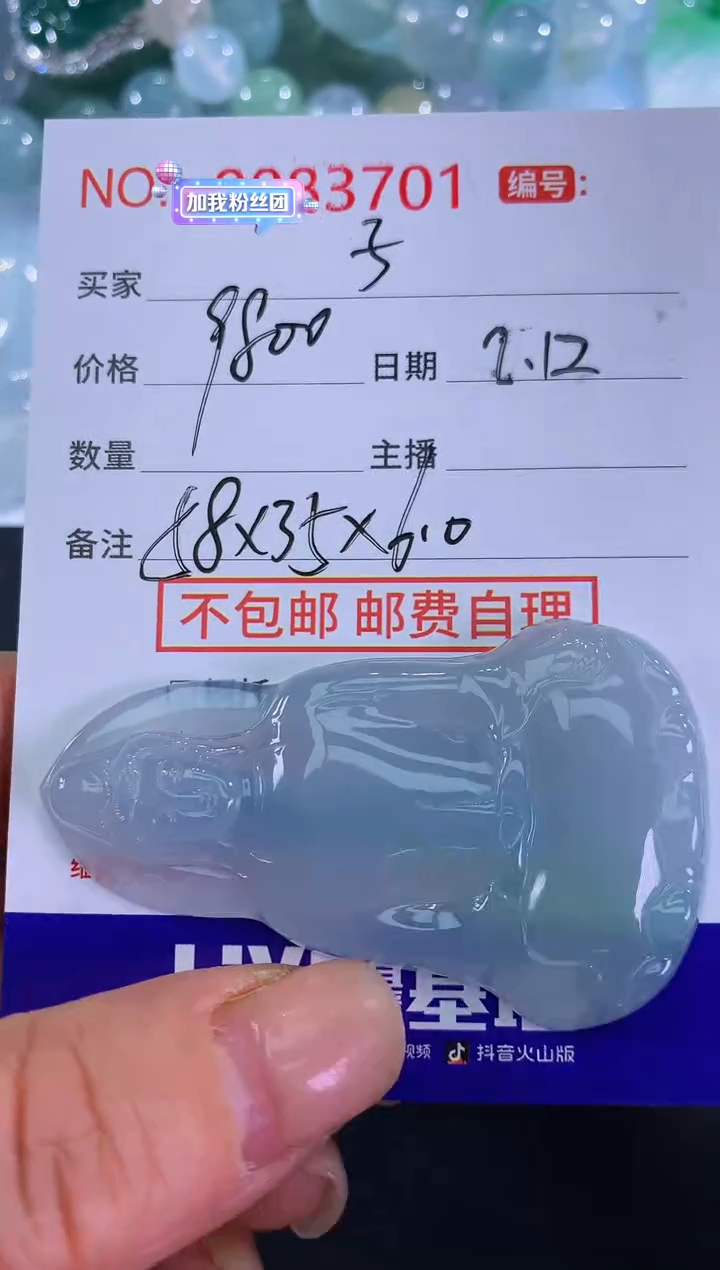 NO 3701 编号:
加我粉丝团
买家
价格 9800 日期 2.12
数量 主播
备注 58x35x6.0
不包邮 邮费自理
视频 抖音火山版